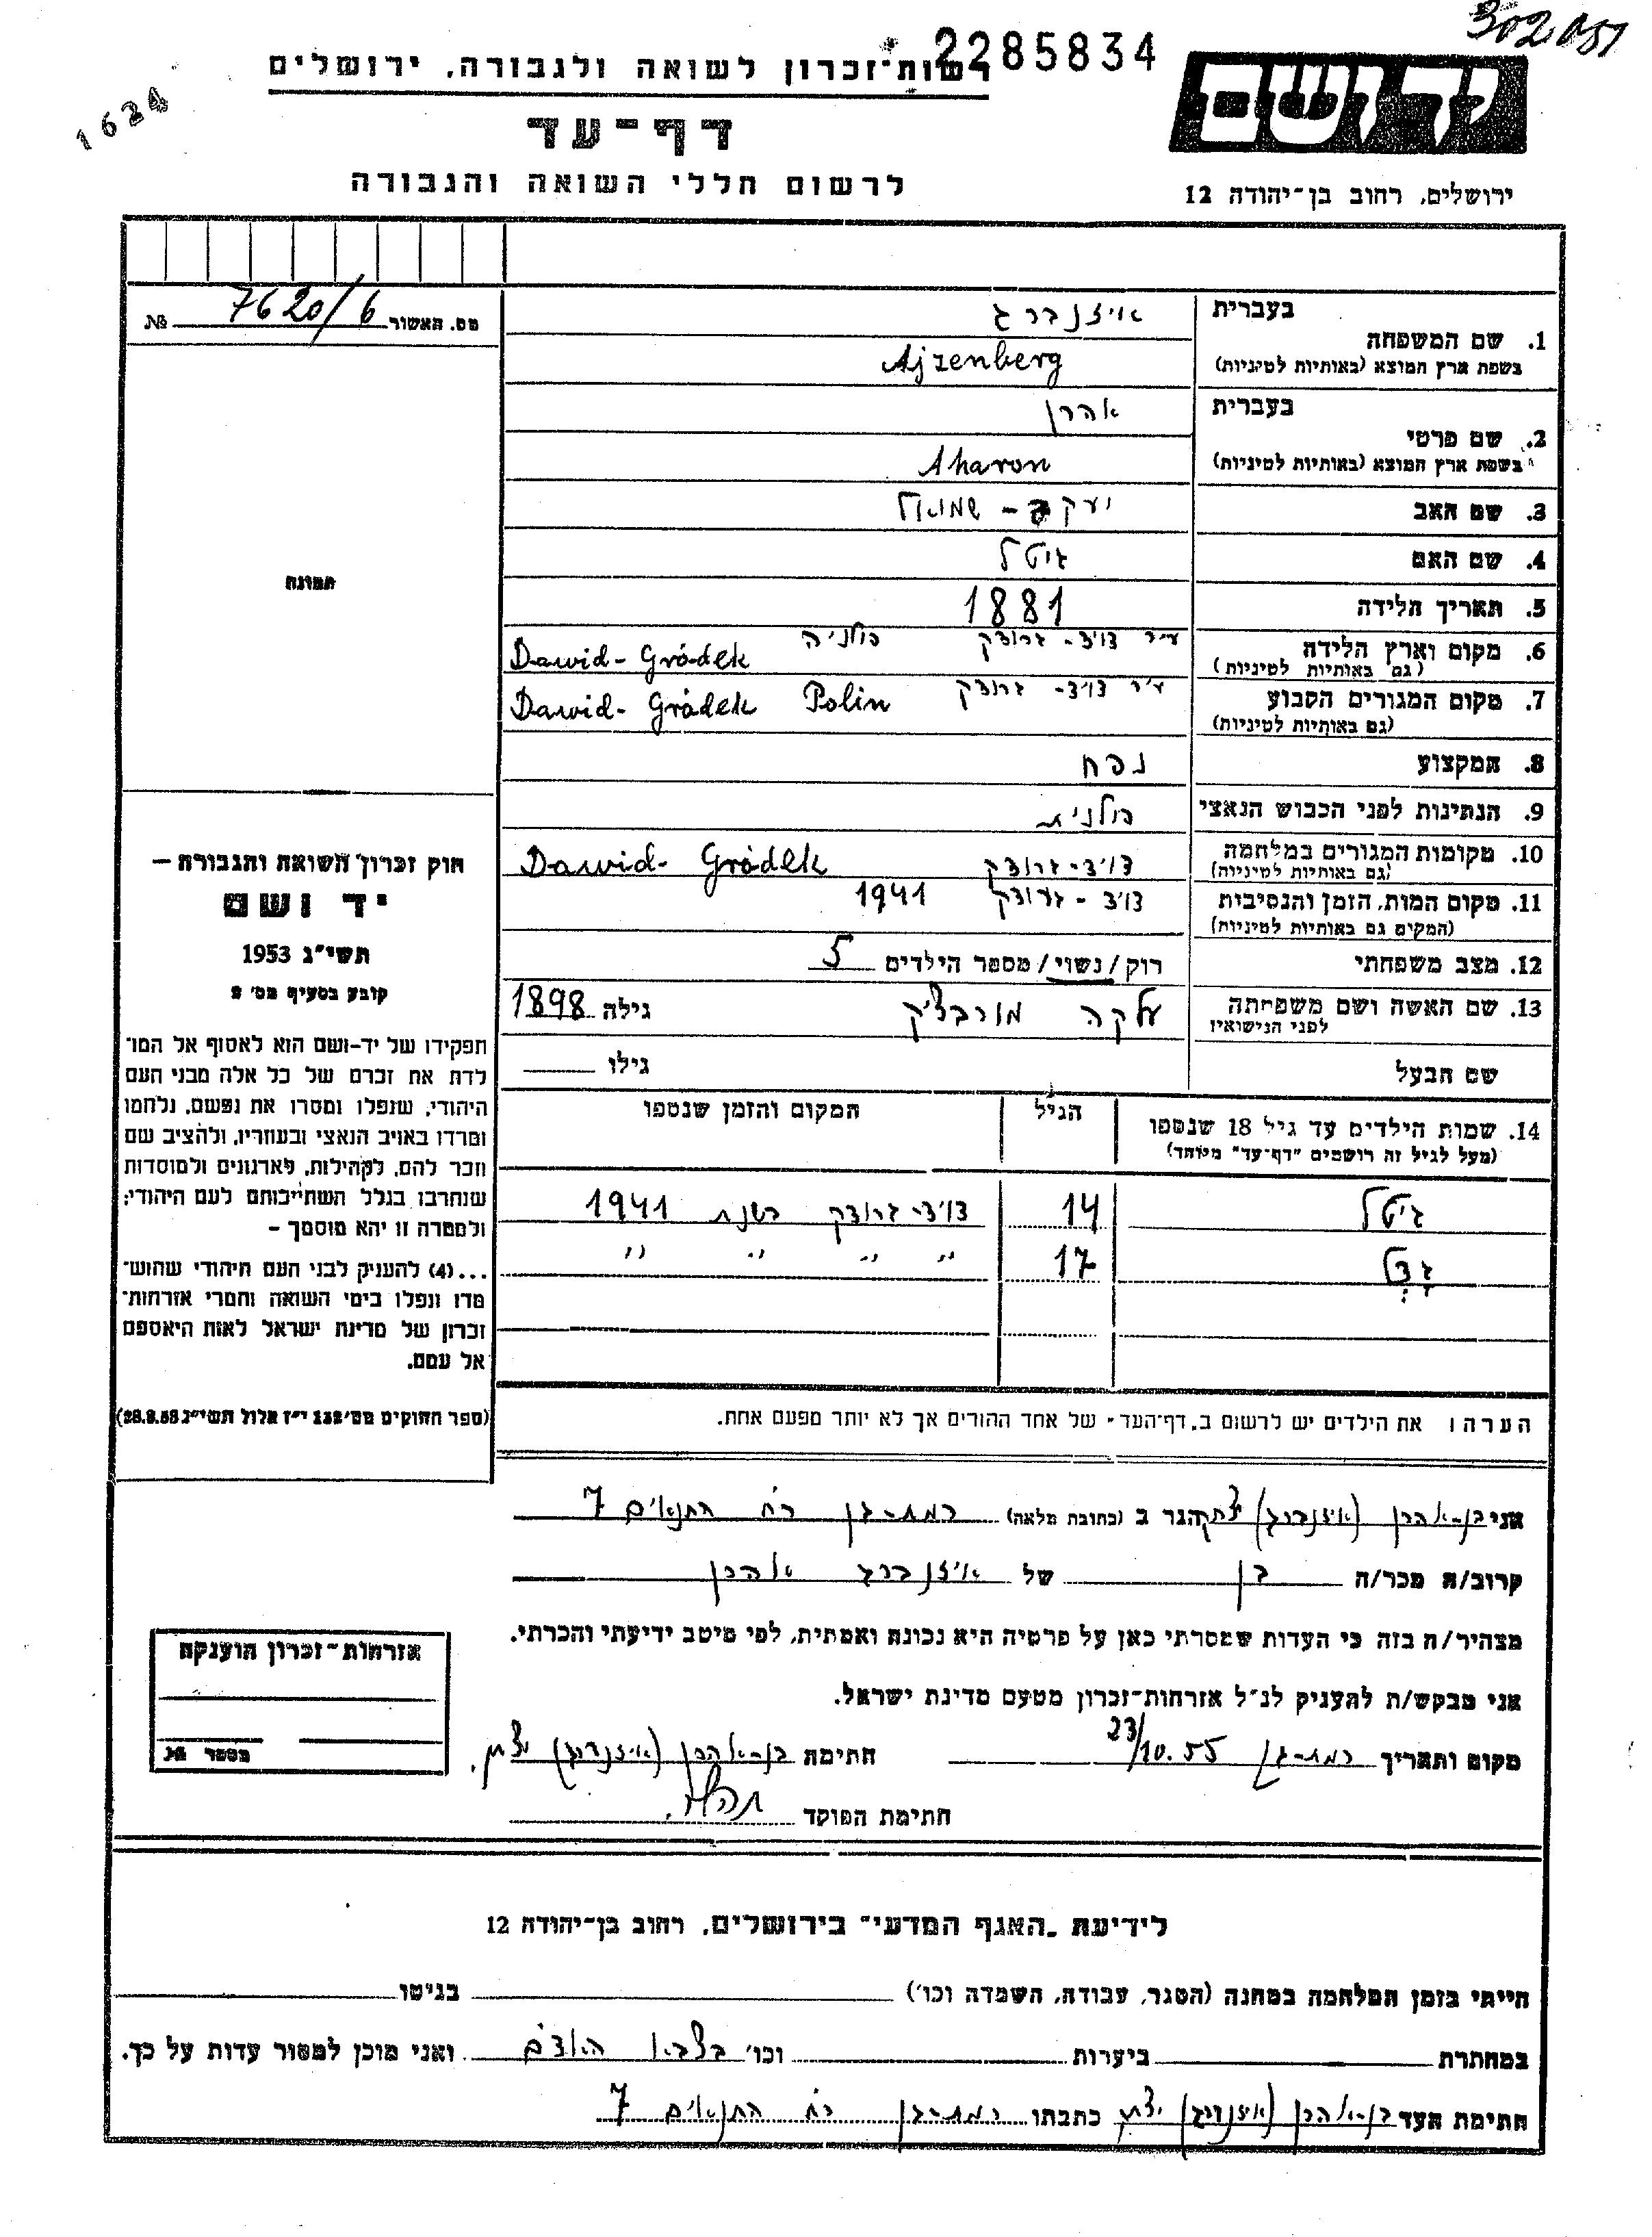 302051
2285834
1624
יד ושם
רשות־זכרון לשואה ולגבורה, ירושלים
דף־עד
לרשום חללי השואה והגבורה
ירושלים, רחוב בן־יהודה 12
מס. האשור 7620/6 №
תמונה
1. שם המשפחה
בעברית איזנברג
בשפת ארץ המוצא (באותיות לטיניות) Ajzenberg
2. שם פרטי
בעברית אהרן
בשפת ארץ המוצא (באותיות לטיניות) Aharon
3. שם האב יעקב - שמואל
4. שם האם גיטל
5. תאריך הלידה 1881
6. מקום וארץ הלידה עיר דויד-גרודק פולניה
(גם באותיות לטיניות) Dawid-Gródek
7. מקום המגורים הקבוע עיר דויד-גרודק
(גם באותיות לטיניות) Dawid-Gródek Polin
8. המקצוע נפח
9. הנתינות לפני הכבוש הנאצי פולנית
10. מקומות המגורים במלחמה דויד-גרודק Dawid-Gródek
(גם באותיות לטיניות)
11. מקום המות, הזמן והנסיבות דויד-גרודק 1941
(המקום גם באותיות לטיניות)
12. מצב משפחתי רוק/נשוי/ מספר הילדים 5
13. שם האשה ושם משפחתה עלקה מורבצ'יק גילה 1898
לפני הנישואין
שם הבעל גילו
14. שמות הילדים עד גיל 18 שנספו הגיל המקום והזמן שנספו
(מעל לגיל זה רושמים "דף־עד" מיוחד)
גיטל 14 דויד-גרודק בשנת 1941
17 " " " "
הערה: את הילדים יש לרשום ב„דף־העד" של אחד ההורים אך לא יותר מפעם אחת.
חוק זכרון השואה והגבורה —
יד ושם
תשי"ג 1953
קובע בסעיף מס' 2
תפקידו של יד-ושם הוא לאסוף אל המו־
לדת את זכרם של כל אלה מבני העם
היהודי, שנפלו ומסרו את נפשם, נלחמו
ומרדו באויב הנאצי ובעוזריו, ולהציב שם
וזכר להם, לקהילות, לארגונים ולמוסדות
שנחרבו בגלל השתייכותם לעם היהודי;
ולמטרה זו יהא מוסמך —
...(4) להעניק לבני העם היהודי שהוש־
מדו ונפלו בימי השואה והמרי אזרחות־
זכרון של מדינת ישראל לאות היאספם
אל עמם.
(ספר החוקים מס' 132 י"ז אלול תשי"ג 28.8.53)
אני בן-אהרן (איזנברג) יצחק הגר ב (כתובת מלאה) רמת-גן רח' התנאים 7
קרוב/ה מכר/ה בן של איזנברג אהרן
מצהיר/ה בזה כי העדות שמסרתי כאן על פרטיה היא נכונה ואמתית, לפי מיטב ידיעתי והכרתי.
אני מבקש/ת להעניק לנ"ל אזרחות־זכרון מטעם מדינת ישראל.
מקום ותאריך רמת-גן 23/10.55 חתימת בן-אהרן (איזנברג) יצחק
חתימת הפוקד
אזרחות־זכרון הוענקה
מספר №
לידיעת „האגף המדעי" בירושלים, רחוב בן־יהודה 12
הייתי בזמן המלחמה במחנה (הסגר, עבודה, השמדה וכו') בגיטו
במחתרת ביערות וכו' בצבא האדם ואני מוכן למסור עדות על כך.
חתימת העד בן-אהרן (איזנברג) יצחק כתבתו רמת-גן רח' התנאים 7